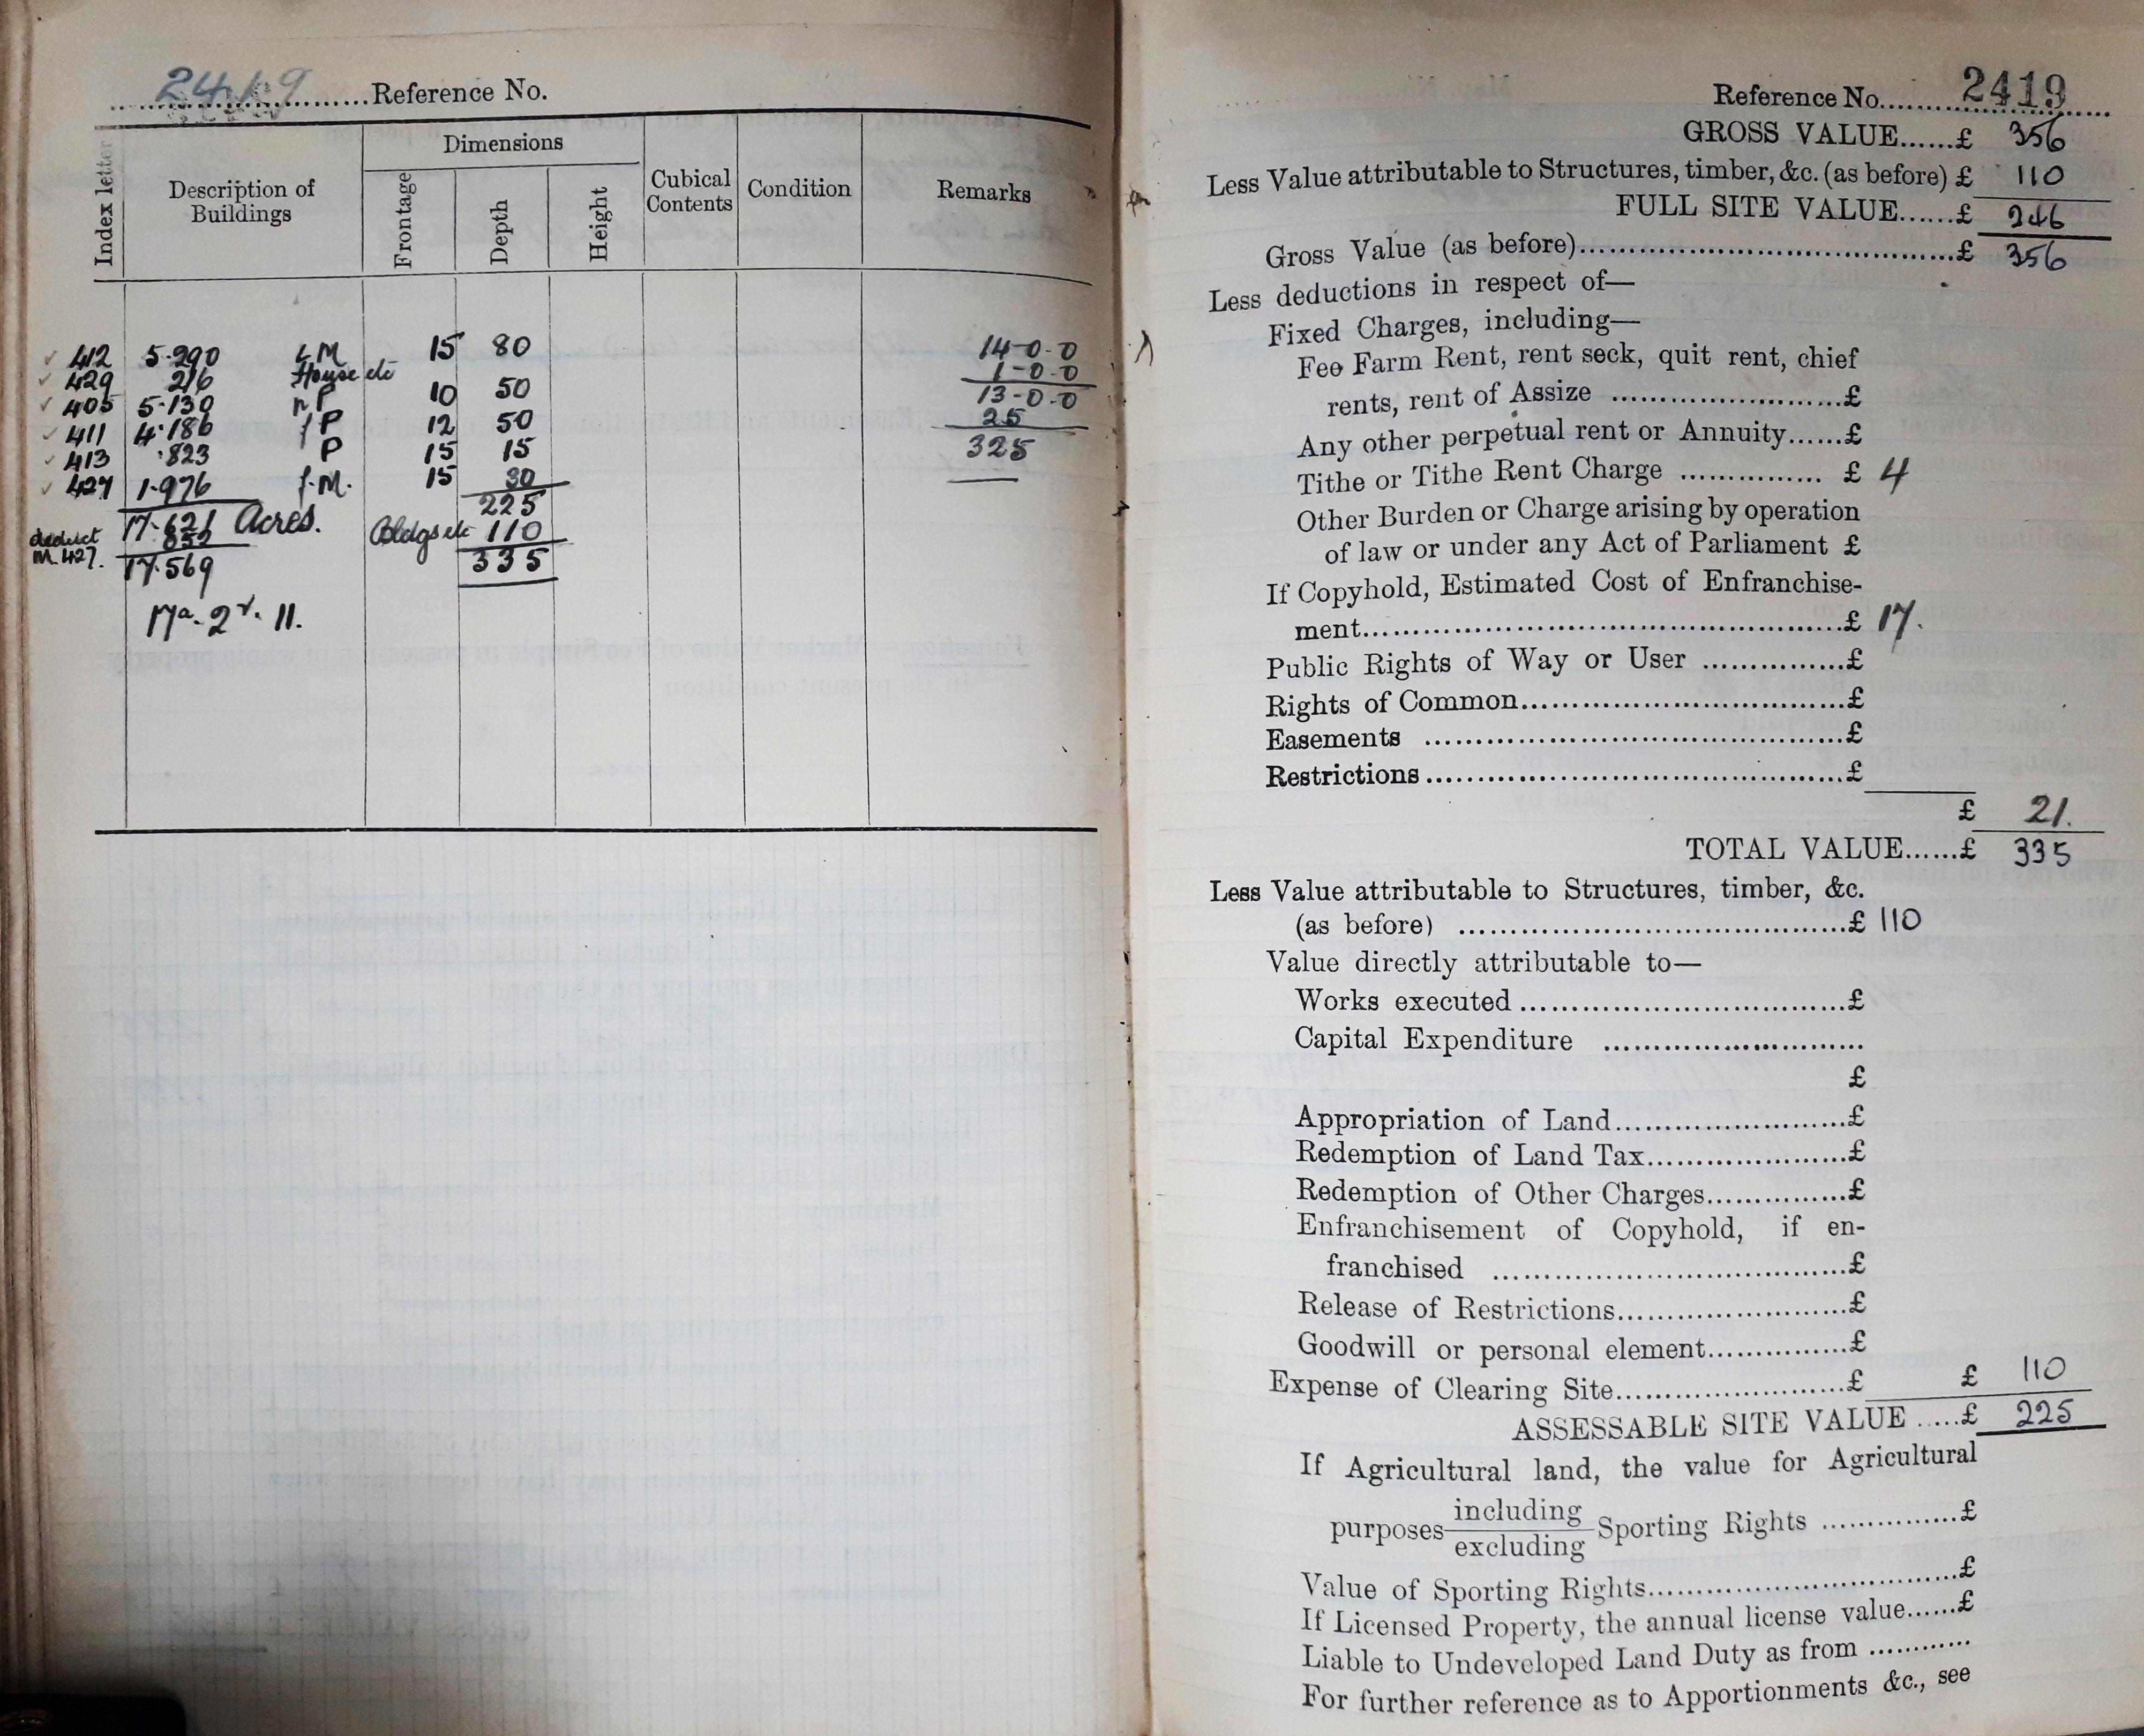 2419 Reference No.
Index letter
Description of Buildings
Dimensions
Frontage
Depth
Height
Cubical Contents
Condition
Remarks
412 5·290 L M 15 80 14-0-0
429 216 House etc 1-0-0
405 5·130 r P 10 50 13-0-0
411 4·186 f P 12 50 25
413 ·823 P 15 15 325
427 1·976 f.M. 15 30
17·621 Acres. 225
deduct Bldgs etc 110
M. 427.
17·569 335
17a. 2r. 11.
Reference No. 2419
GROSS VALUE......£ 356
Less Value attributable to Structures, timber, &c. (as before) £ 110
FULL SITE VALUE......£ 246
Gross Value (as before)..........£ 356
Less deductions in respect of—
Fixed Charges, including—
Fee Farm Rent, rent seck, quit rent, chief
rents, rent of Assize ..........£
Any other perpetual rent or Annuity......£
Tithe or Tithe Rent Charge ............... £ 4
Other Burden or Charge arising by operation
of law or under any Act of Parliament £
If Copyhold, Estimated Cost of Enfranchise-
ment..........£ 17.
Public Rights of Way or User ...............£
Rights of Common..........£
Easements ..........£
Restrictions..........£
£ 21.
TOTAL VALUE......£ 335
Less Value attributable to Structures, timber, &c.
(as before) ..........£ 110
Value directly attributable to—
Works executed ..........£
Capital Expenditure ..........
£
Appropriation of Land..........£
Redemption of Land Tax..........£
Redemption of Other Charges...............£
Enfranchisement of Copyhold, if en-
franchised ..........£
Release of Restrictions..........£
Goodwill or personal element...............£
Expense of Clearing Site..........£ £ 110
ASSESSABLE SITE VALUE .....£ 225
If Agricultural land, the value for Agricultural
purposes including
excluding Sporting Rights ...............£
Value of Sporting Rights..........£
If Licensed Property, the annual license value......£
Liable to Undeveloped Land Duty as from ............
For further reference as to Apportionments &c., see